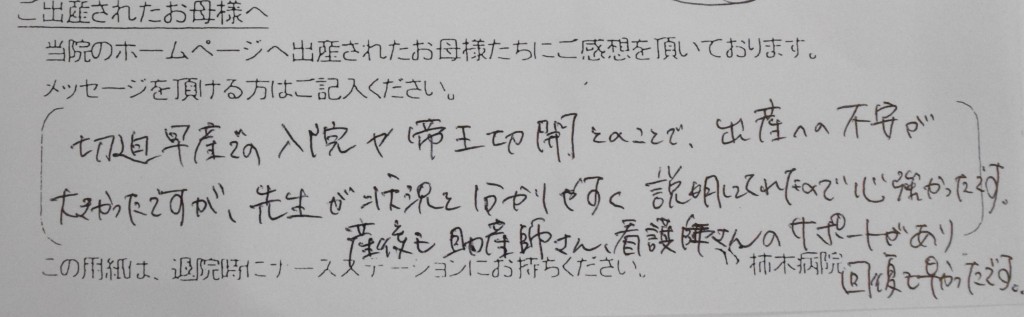 ご出産されたお母様へ
当院のホームページへ出産されたお母様たちにご感想を頂いております。
メッセージを頂ける方はご記入ください。
切迫早産での入院や帝王切開とのことで、出産への不安が
大きかったですが、先生が状況を分かりやすく説明してくれたので心強かったです。
産後も助産師さん、看護師さんのサポートがあり
回復も早かったです。
この用紙は、退院時にナースステーションにお持ちください。
柿木病院